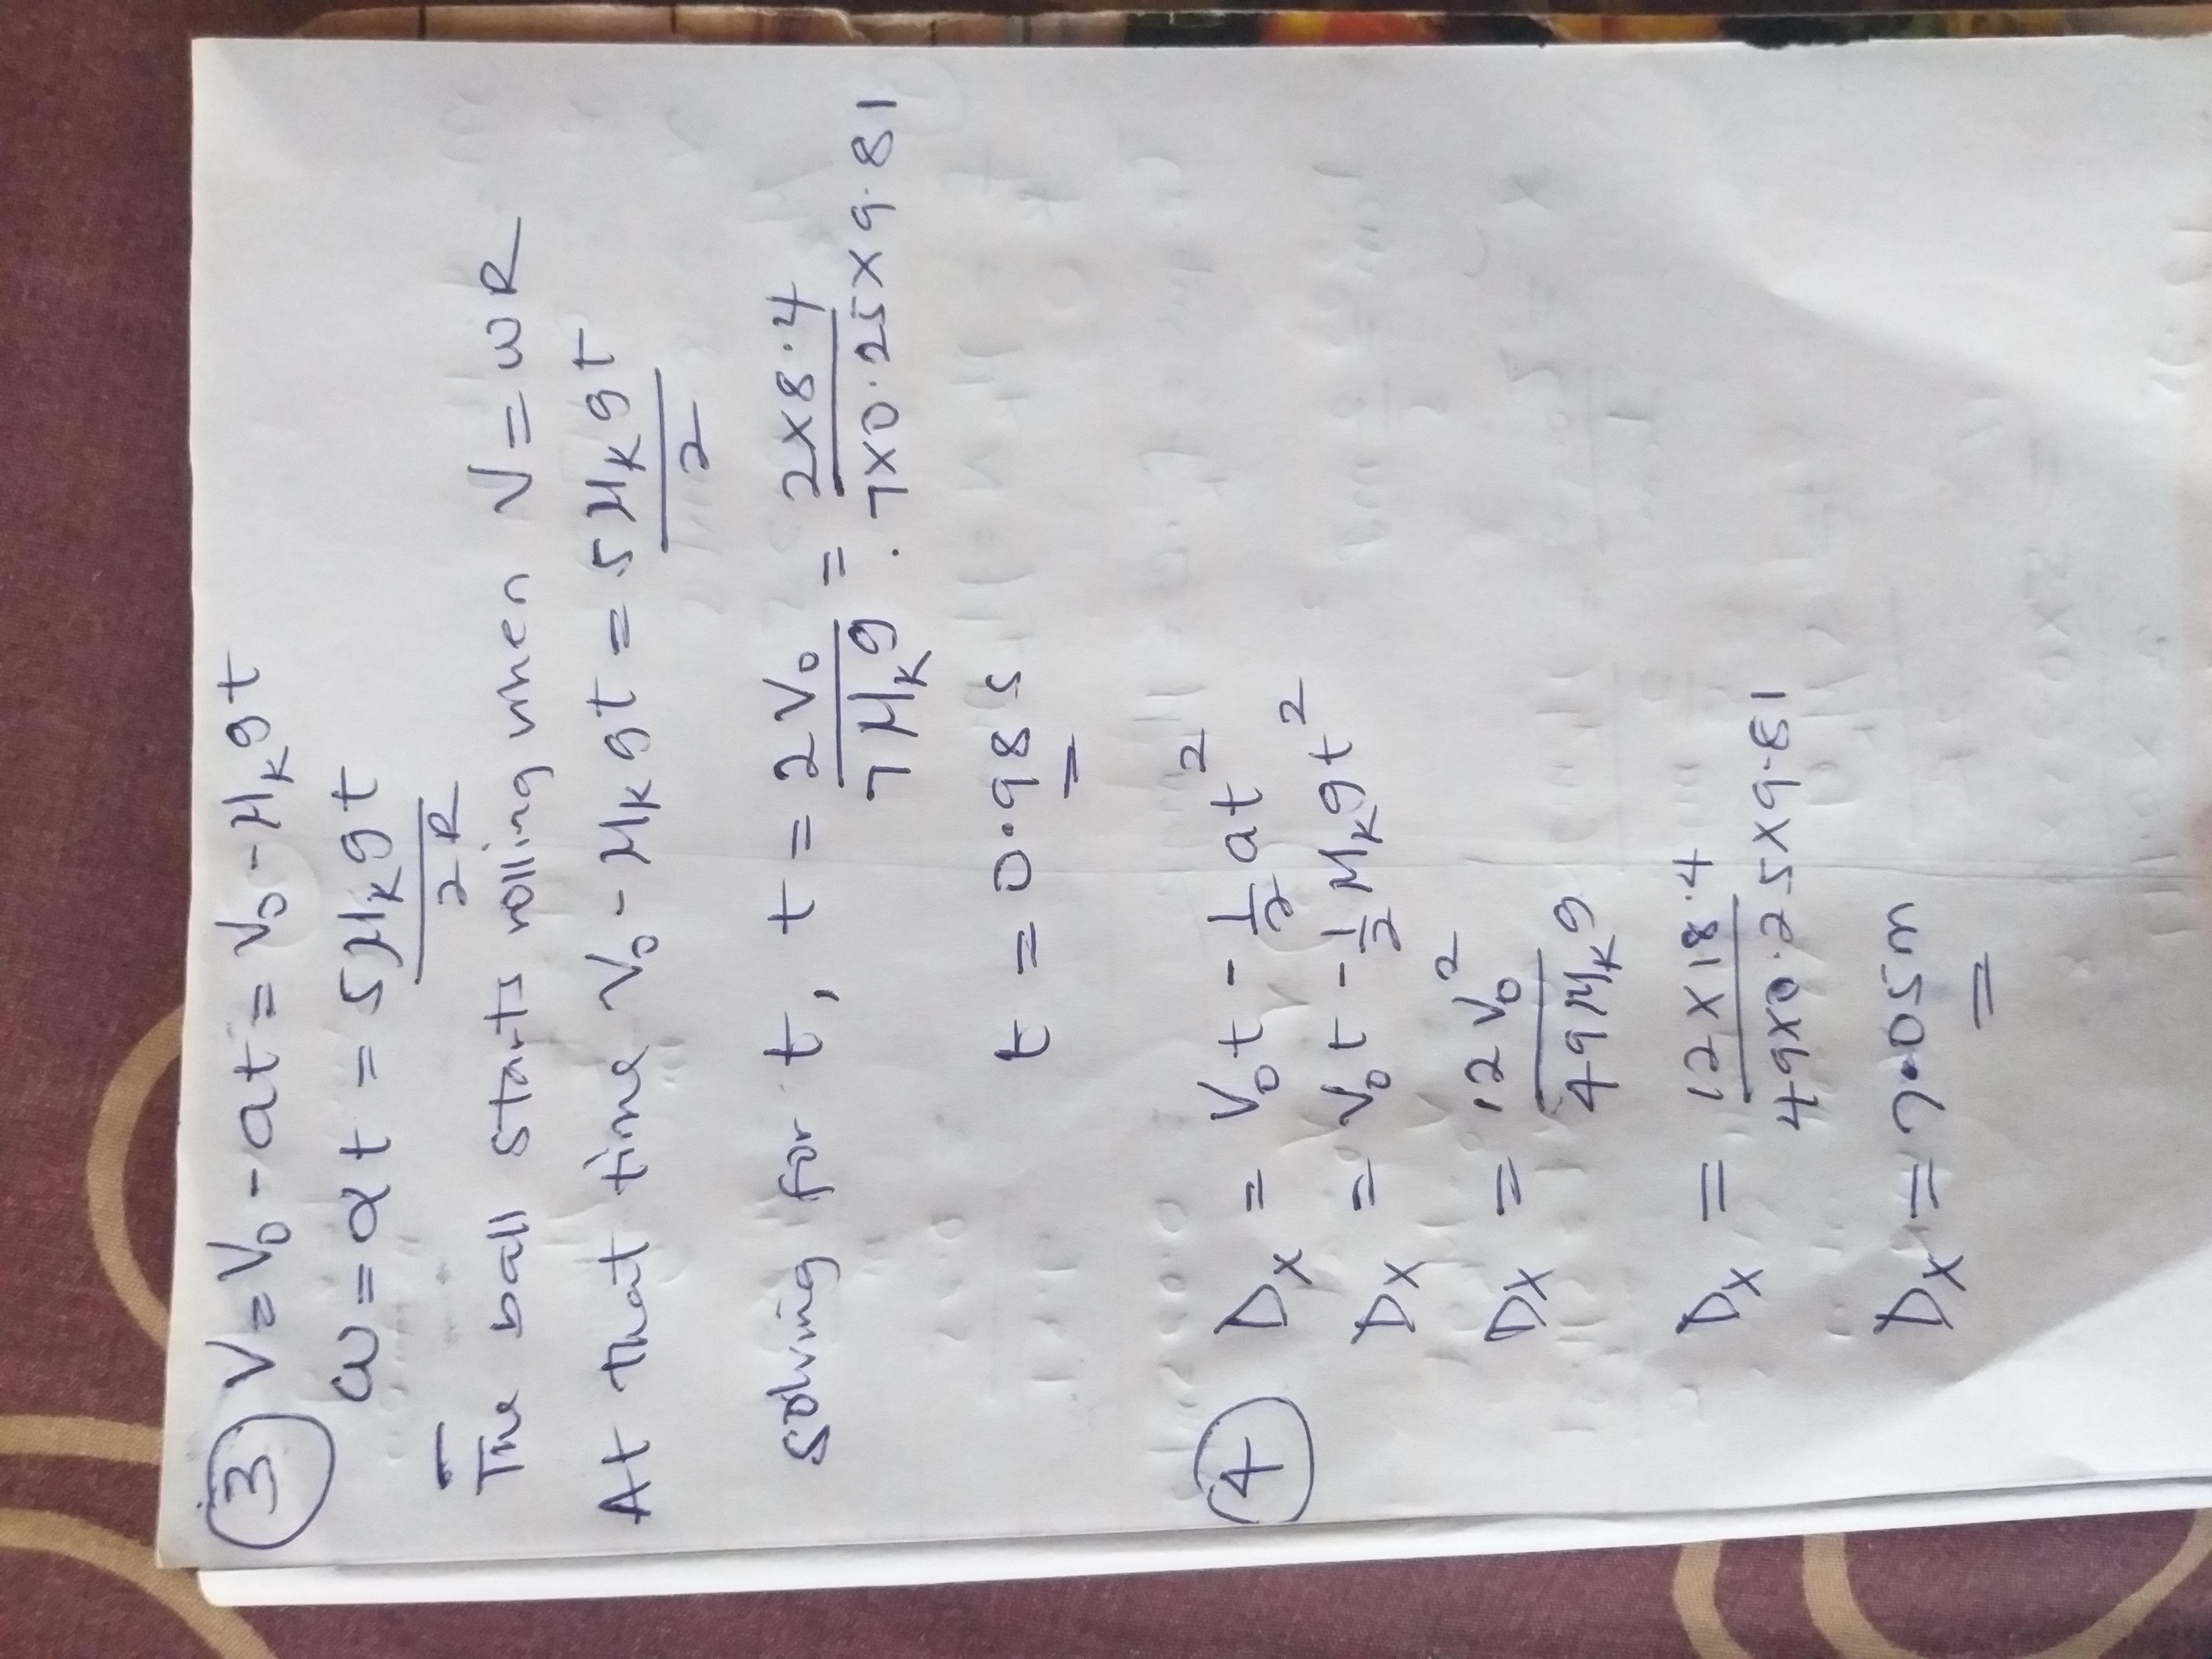 ③ V = V₀ - at = V₀ - μₖgt
ω = αt = 5μₖgt / 2R
The ball starts rolling when V = ωR
At that time V₀ - μₖgt = 5μₖgt / 2
solving for t, t = 2V₀ / 7μₖg = 2×8.4 / 7×0.25×9.81
t = 0.98 s
④ Dx = V₀t - ½at²
Dx = V₀t - ½μₖgt²
Dx = 12V₀² / 49μₖg
Dx = 12×18.4 / 49×0.25×9.81
Dx = 7.05m